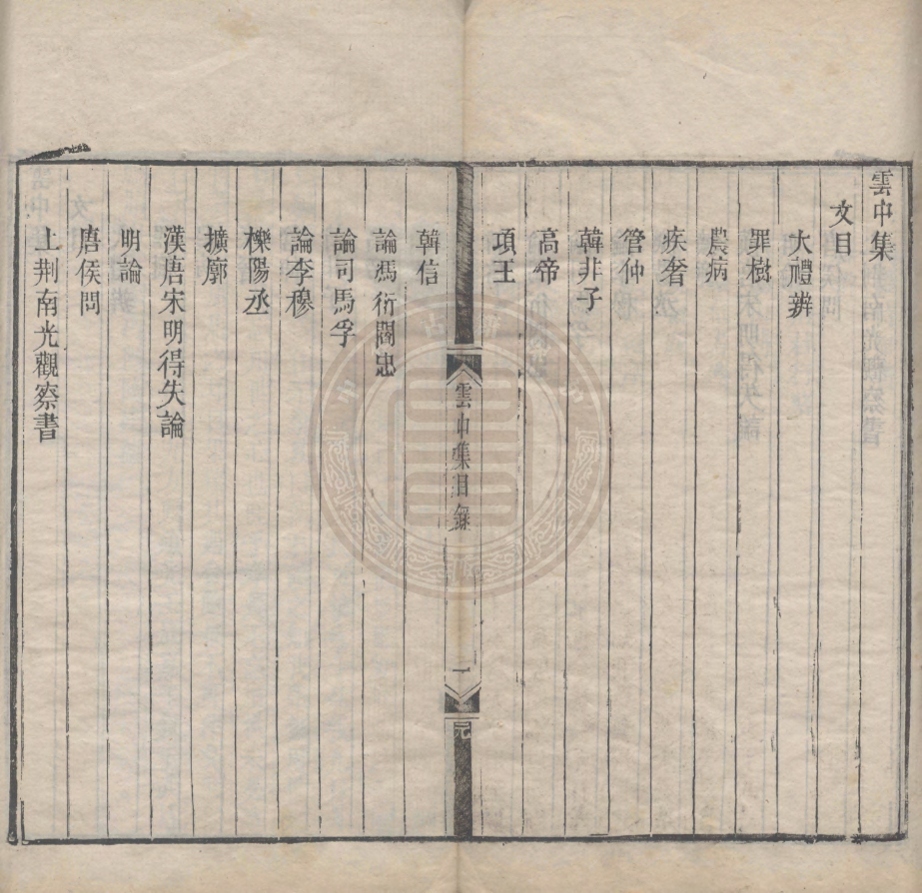 雲中集
文目
大禮辨
罪樹
農病
疾奢
管仲
韓非子
高帝
項王
雲中集目錄
一
元
韓信
論馮衍閻忠
論司馬孚
論李穆
櫟陽丞
擴廓
漢唐宋明得失論
明論
唐侯問
上荆南光觀察書